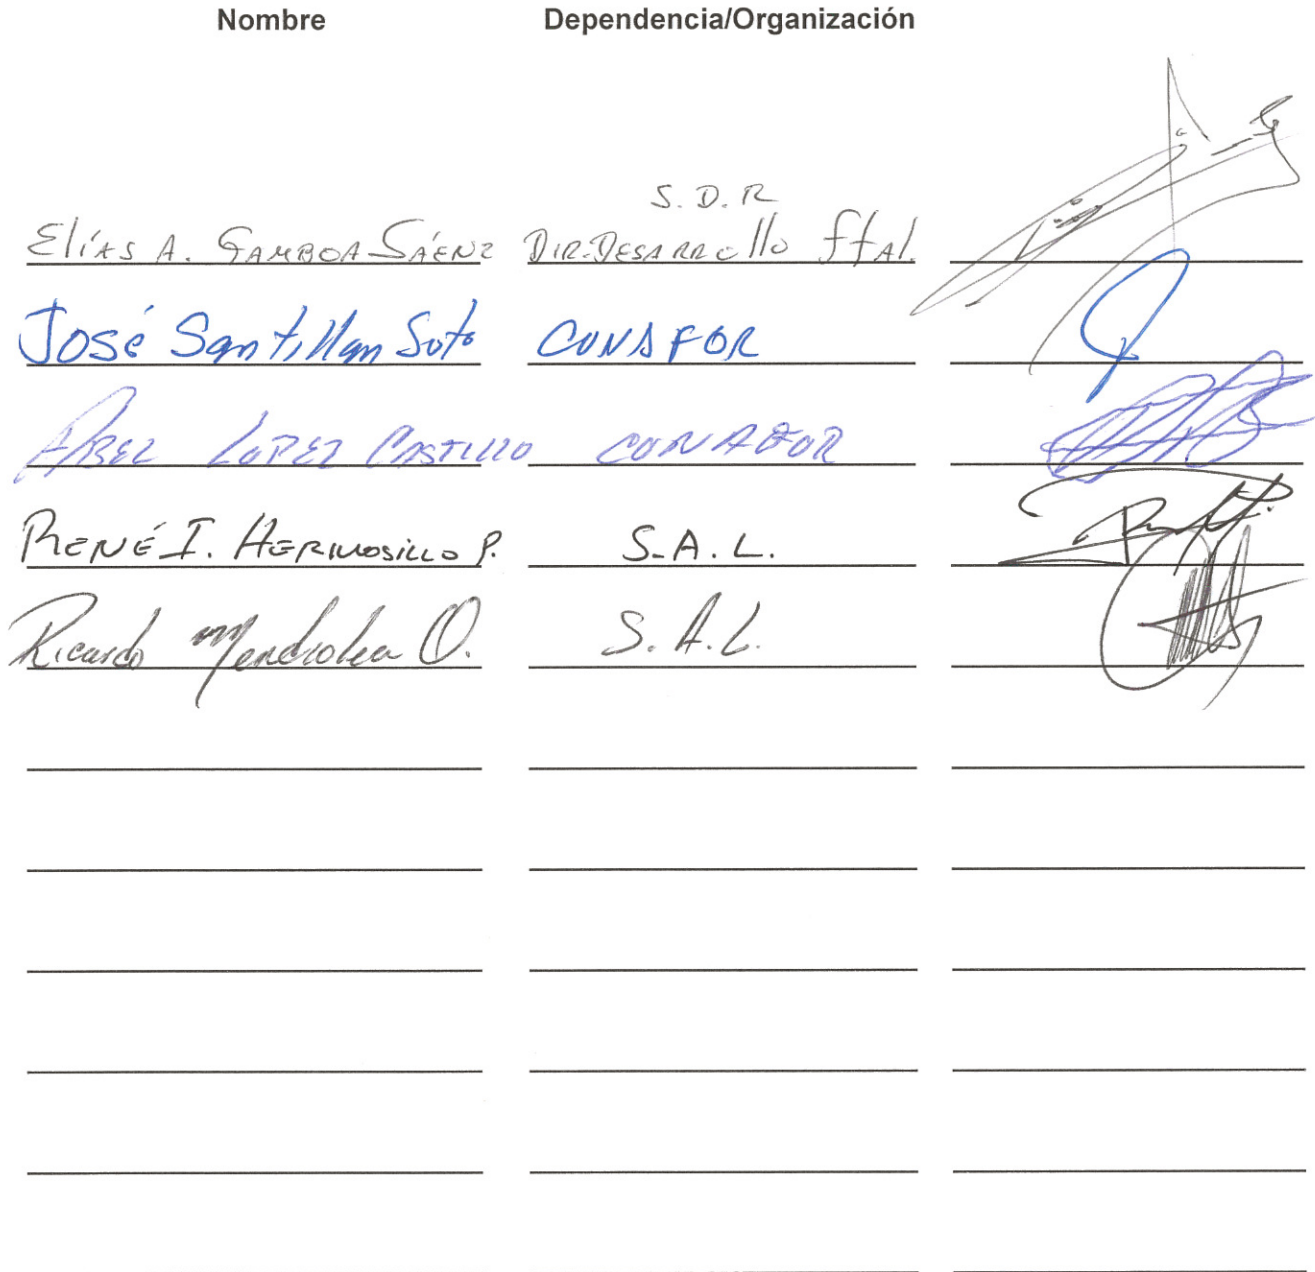 Nombre Dependencia/Organización
S. D. R
Elías A. Gamboa Sáenz Dir. Desarrollo ftal.
José Santillan Soto CONAFOR
Abel Lopez Castillo CONAFOR
René I. Hermosillo P. S.A.L.
Ricardo Mendiolea O. S.A.L.